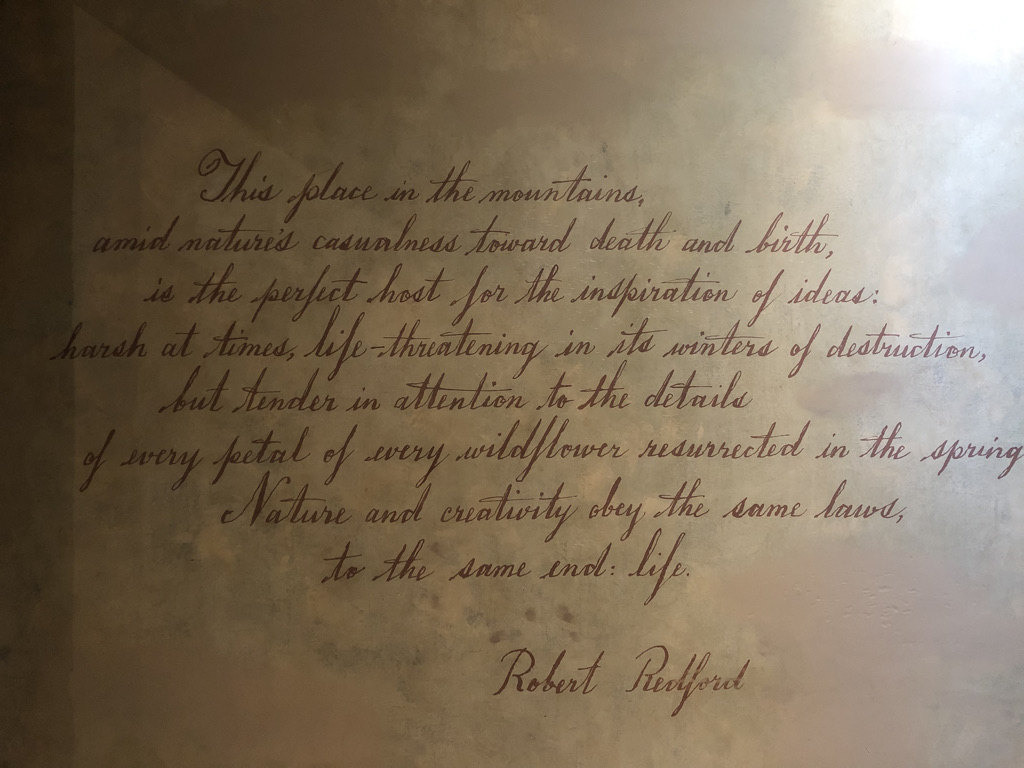 This place in the mountains,
amid nature's casualness toward death and birth,
is the perfect host for the inspiration of ideas:
harsh at times, life-threatening in its winters of destruction,
but tender in attention to the details
of every petal of every wildflower resurrected in the spring
Nature and creativity obey the same laws,
to the same end: life.
Robert Redford